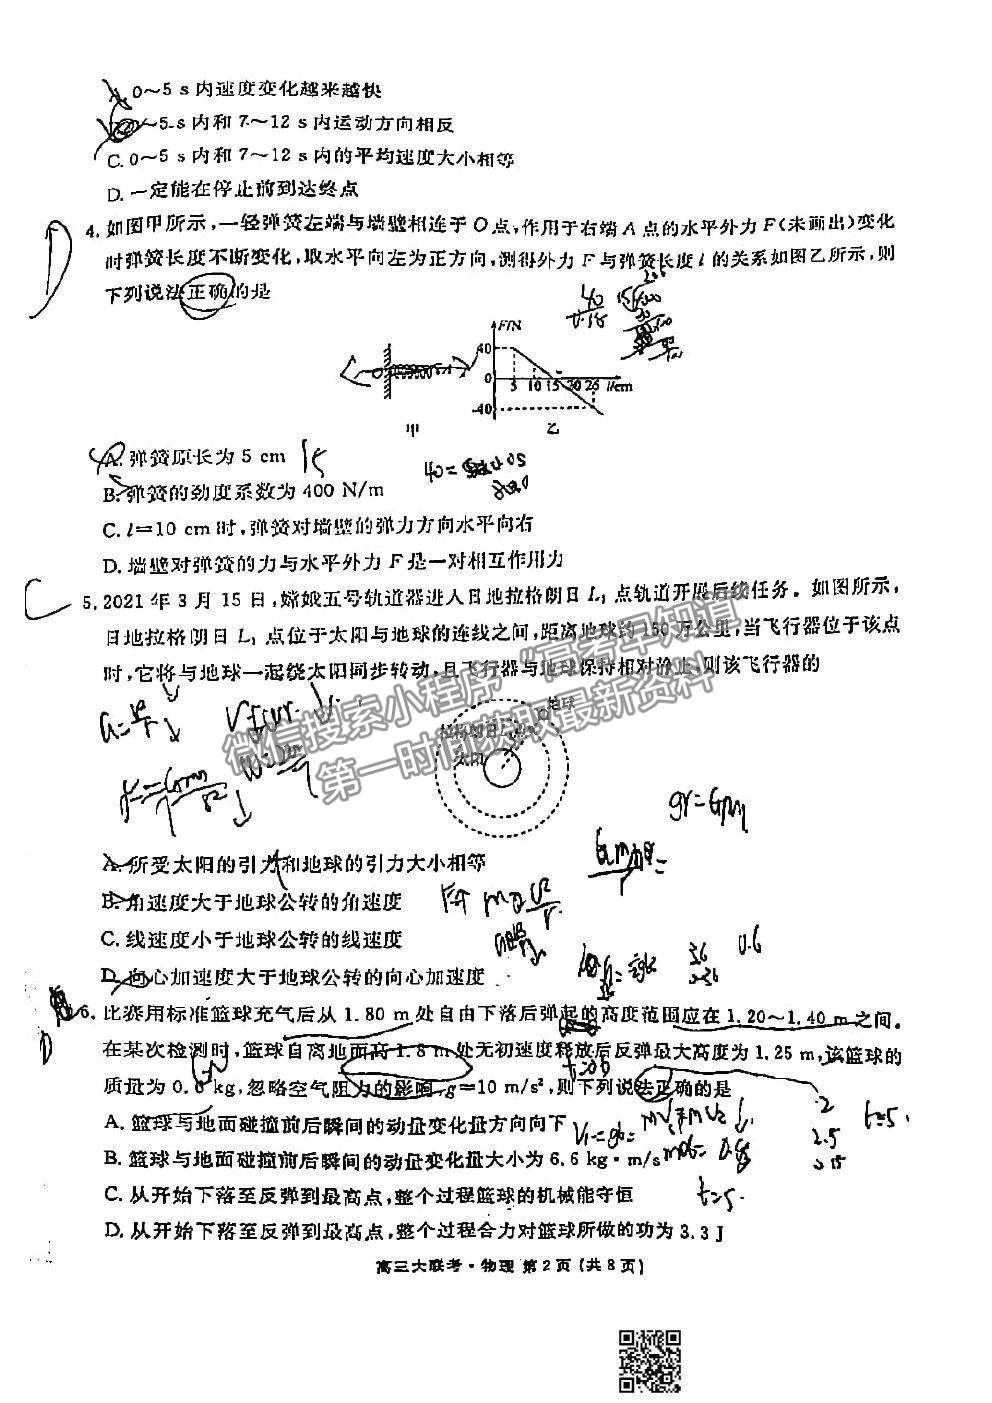 A. 0～5 s内速度变化越来越快
B. 0～5 s内和7～12 s内运动方向相反
C. 0～5 s内和7～12 s内的平均速度大小相等
D. 一定能在停止前到达终点
D
4. 如图甲所示,一轻弹簧左端与墙壁相连于O点,作用于右端A点的水平外力F(未画出)变化
时弹簧长度不断变化,取水平向左为正方向,测得外力F与弹簧长度l的关系如图乙所示,则
下列说法正确的是
F/N
40
0
-40
5 10 15 20 25 l/cm
O
甲
乙
A. 弹簧原长为5 cm 15
B. 弹簧的劲度系数为400 N/m
C. l=10 cm时,弹簧对墙壁的弹力方向水平向右
D. 墙壁对弹簧的力与水平外力F是一对相互作用力
C
5. 2021年3月15日,嫦娥五号轨道器进入日地拉格朗日L₁点轨道开展后续任务。如图所示,
日地拉格朗日L₁点位于太阳与地球的连线之间,距离地球约150万公里,当飞行器位于该点
时,它将与地球一起绕太阳同步转动,且飞行器与地球保持相对静止,则该飞行器的
微信搜索小程序“高考早知道”
第一时间获取最新资料
地球
拉格朗日L₁点
太阳
gr=GM
A. 所受太阳的引力和地球的引力大小相等
B. 角速度大于地球公转的角速度
C. 线速度小于地球公转的线速度
D. 向心加速度大于地球公转的向心加速度
36
0.6
D
6. 比赛用标准篮球充气后从1.80 m处自由下落后弹起的高度范围应在1.20～1.40 m之间。
在某次检测时,篮球自离地面高1.8 m处无初速度释放后反弹最大高度为1.25 m,该篮球的
质量为0.6 kg,忽略空气阻力的影响,g=10 m/s²,则下列说法正确的是
A. 篮球与地面碰撞前后瞬间的动量变化量方向向下
B. 篮球与地面碰撞前后瞬间的动量变化量大小为6.6 kg·m/s
C. 从开始下落至反弹到最高点,整个过程篮球的机械能守恒
D. 从开始下落至反弹到最高点,整个过程合力对篮球所做的功为3.3 J
高三大联考·物理 第2页(共8页)